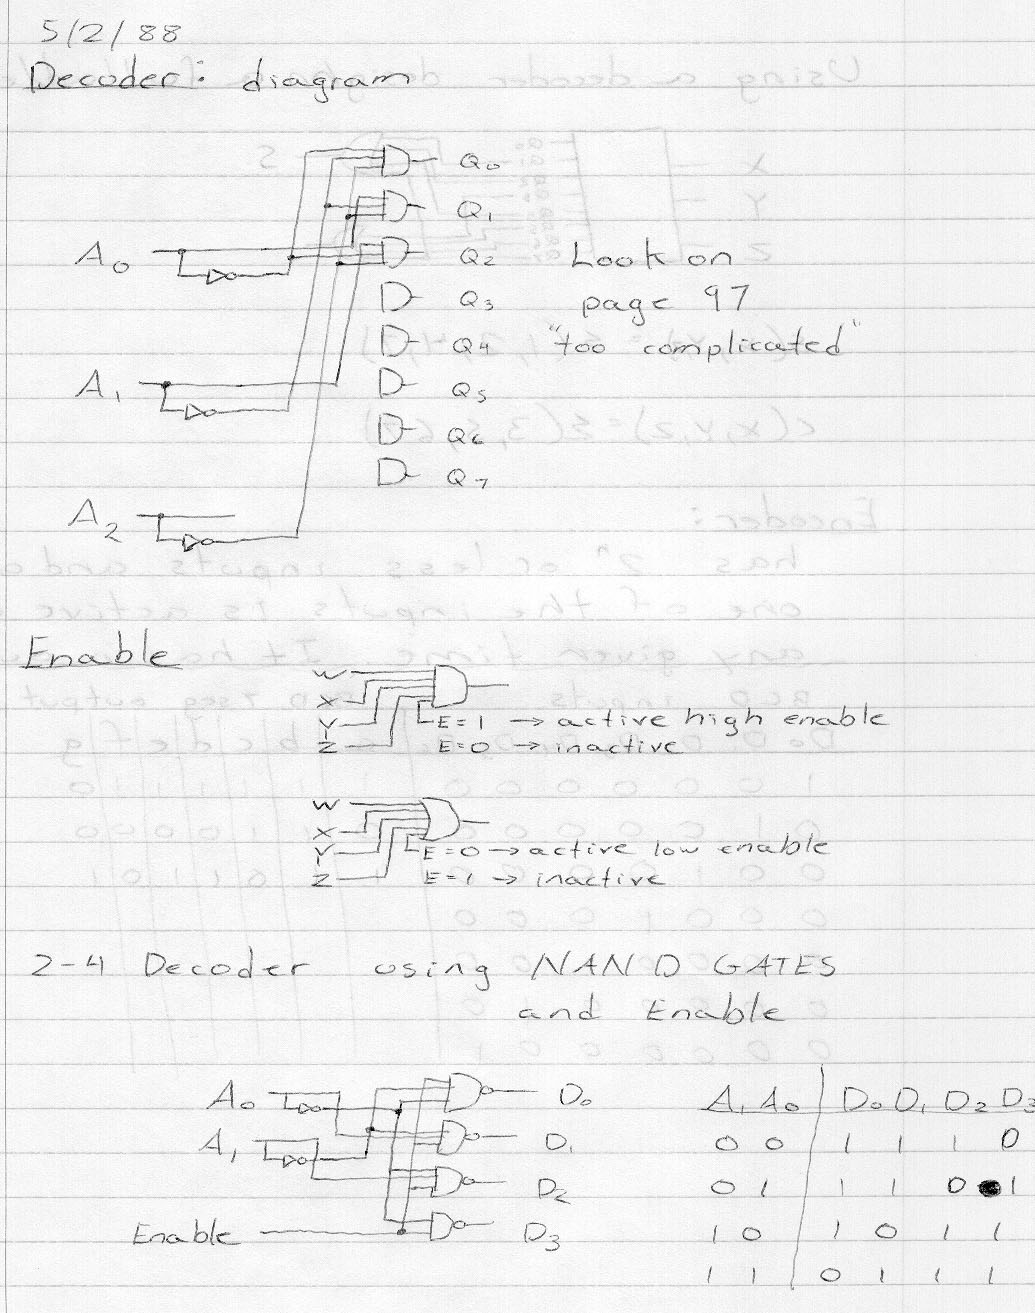 5/2/88
Decoder: diagram
Q0
Q1
A0
Q2 Look on
Q3 page 97
Q4 "too complicated"
A1
Q5
Q6
Q7
A2
Enable
W
X
Y E=1 → active high enable
Z E=0 → inactive
W
X
Y E=0 → active low enable
Z E=1 → inactive
2-4 Decoder using NAND GATES
and Enable
A0 D0
A1 D1
D2
Enable D3
A1 A0 D0 D1 D2 D3
0 0 1 1 1 0
0 1 1 1 0 1
1 0 1 0 1 1
1 1 0 1 1 1